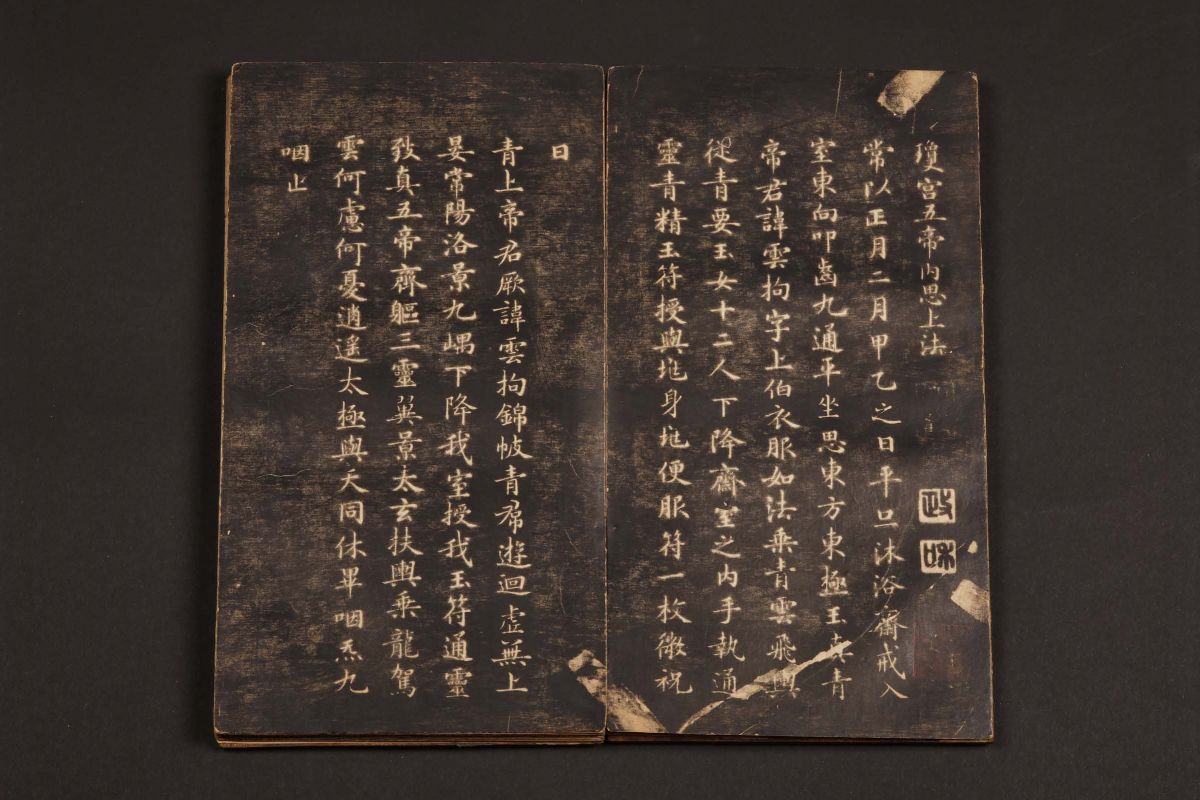 瓊宮五帝内思上法
常以正月二月甲乙之日平旦沐浴齋戒入
室東向叩齒九通平坐思東方東極玉真青
帝君諱雲拘字上伯衣服如法乗青雲飛輿
從青要玉女十二人下降齋室之内手執通
靈青精玉符授與地身地便服符一枚微祝
曰
青上帝君厥諱雲拘錦帔青帬遊迴虛無上
晏常陽洛景九嵎下降我室授我玉符通靈
致真五帝齊軀三靈翼景太玄扶輿乗龍駕
雲何慮何憂逍遥太極與天同休畢咽炁九
咽止
政
和